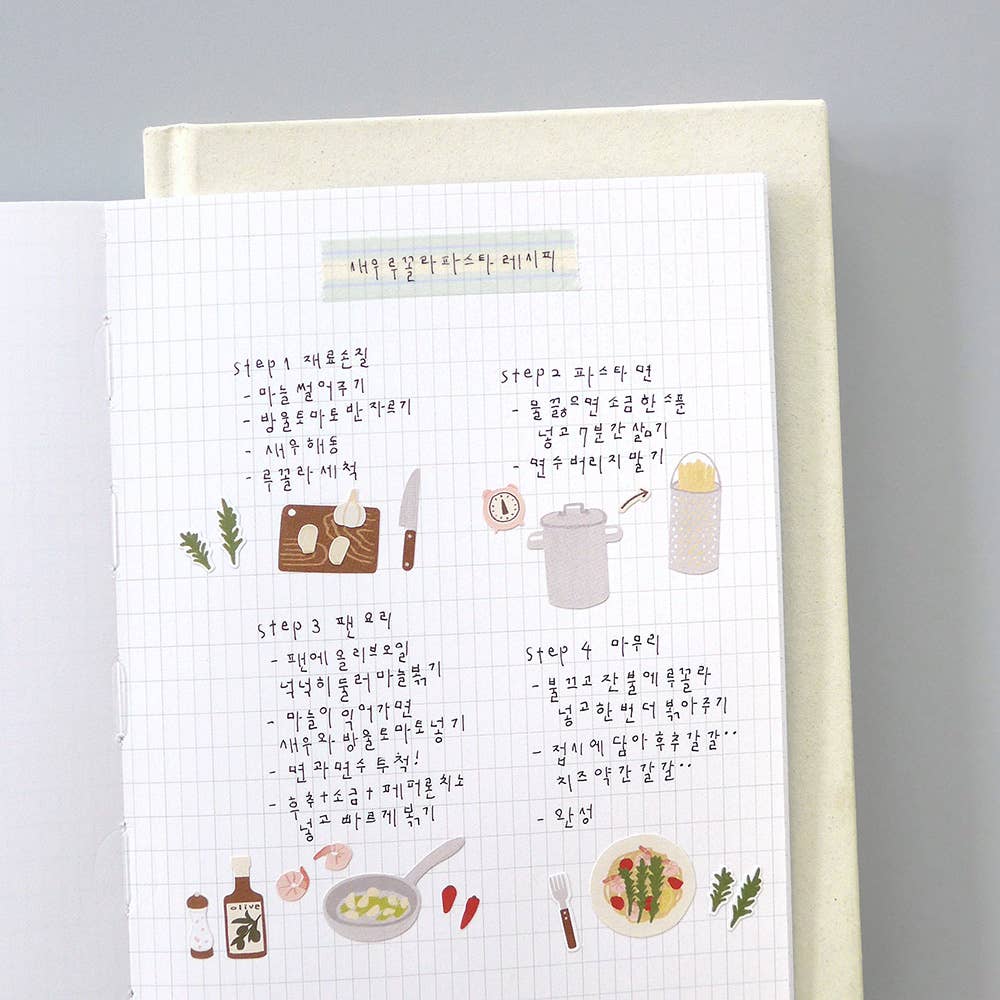 새우루꼴라파스타 레시피
step 1 재료손질
- 마늘 썰어주기
- 방울토마토 반 자르기
- 새우 해동
- 루꼴라 세척
step 2 파스타 면
- 물 끓으면 소금 한 스푼
넣고 7분간 삶기
- 면수 버리지 말기
step 3 팬 요리
- 팬에 올리브오일
넉넉히 둘러 마늘 볶기
- 마늘이 익어가면
새우와 방울토마토 넣기
- 면과 면수 투척!
- 후추+소금+페퍼론치노
넣고 빠르게 볶기
step 4 마무리
- 불 끄고 잔 불에 루꼴라
넣고 한 번 더 볶아주기
- 접시에 담아 후추 갈갈..
치즈 약간 갈갈..
- 완성
olive